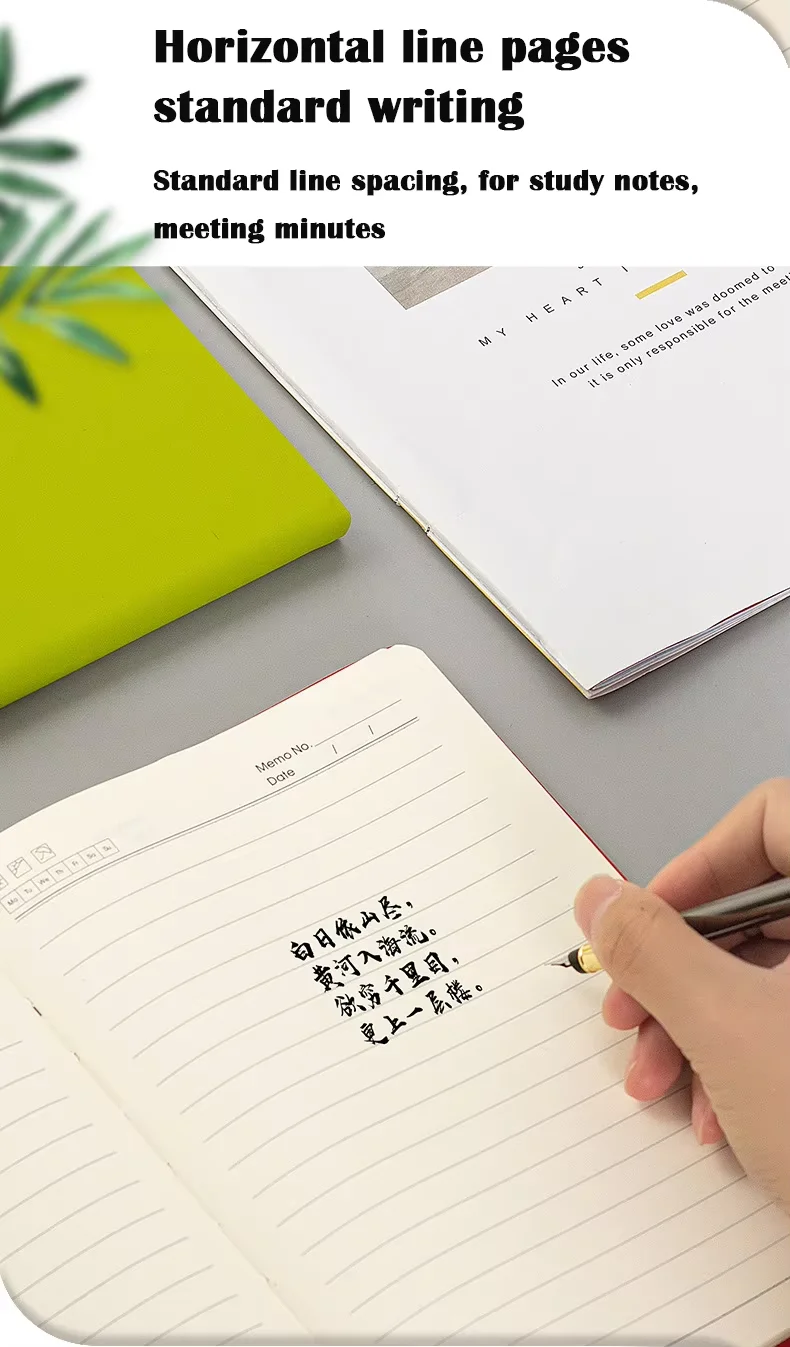 Horizontal line pages
standard writing
Standard line spacing, for study notes,
meeting minutes
MY HEART
In our life, some love was doomed to
it is only responsible for the meeti
Memo No.
Date / /
Mo Tu We Th Fr Sa Su
白日依山尽，
黄河入海流。
欲穷千里目，
更上一层楼。